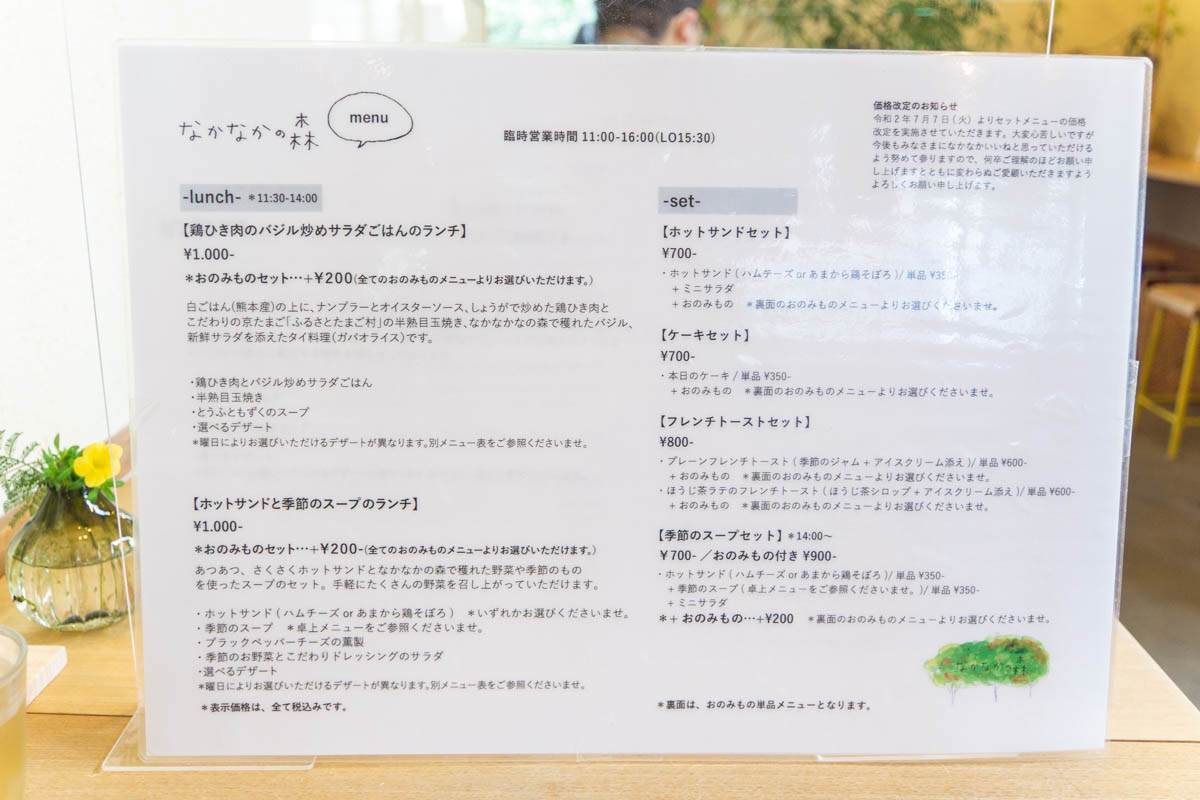 なかなかの森
menu
臨時営業時間 11:00-16:00(LO15:30)
価格改定のお知らせ
令和2年7月7日(火)よりセットメニューの価格
改定を実施させていただきます。大変心苦しいですが
今後もみなさまになかなかいいねと思っていただける
よう努めて参りますので、何卒ご理解のほどお願い申
し上げますとともに変わらぬご愛顧いただきますよう
よろしくお願い申し上げます。
-lunch- *11:30-14:00
【鶏ひき肉のバジル炒めサラダごはんのランチ】
¥1.000-
*おのみものセット…+¥200(全てのおのみものメニューよりお選びいただけます。)
白ごはん(熊本産)の上に、ナンプラーとオイスターソース、しょうがで炒めた鶏ひき肉と
こだわりの京たまご「ふるさとたまご村」の半熟目玉焼き、なかなかなの森で穫れたバジル、
新鮮サラダを添えたタイ料理(ガパオライス)です。
・鶏ひき肉とバジル炒めサラダごはん
・半熟目玉焼き
・とうふともずくのスープ
・選べるデザート
*曜日によりお選びいただけるデザートが異なります。別メニュー表をご参照くださいませ。
【ホットサンドと季節のスープのランチ】
¥1.000-
*おのみものセット…+¥200-(全てのおのみものメニューよりお選びいただけます。)
あつあつ、さくさくホットサンドとなかなかの森で穫れた野菜や季節のもの
を使ったスープのセット。手軽にたくさんの野菜を召し上がっていただけます。
・ホットサンド(ハムチーズ or あまから鶏そぼろ) *いずれかお選びくださいませ。
・季節のスープ *卓上メニューをご参照くださいませ。
・ブラックペッパーチーズの薫製
・季節のお野菜とこだわりドレッシングのサラダ
・選べるデザート
*曜日によりお選びいただけるデザートが異なります。別メニュー表をご参照くださいませ。
*表示価格は、全て税込みです。
-set-
【ホットサンドセット】
¥700-
・ホットサンド(ハムチーズ or あまから鶏そぼろ)/ 単品 ¥350-
+ ミニサラダ
+ おのみもの *裏面のおのみものメニューよりお選びくださいませ。
【ケーキセット】
¥700-
・本日のケーキ / 単品 ¥350-
+ おのみもの *裏面のおのみものメニューよりお選びくださいませ。
【フレンチトーストセット】
¥800-
・プレーンフレンチトースト(季節のジャム+アイスクリーム添え)/ 単品 ¥600-
+ おのみもの *裏面のおのみものメニューよりお選びくださいませ。
・ほうじ茶ラテのフレンチトースト(ほうじ茶シロップ+アイスクリーム添え)/ 単品 ¥600-
+ おのみもの *裏面のおのみものメニューよりお選びくださいませ。
【季節のスープセット】*14:00〜
¥700- /おのみもの付き ¥900-
・ホットサンド(ハムチーズ or あまから鶏そぼろ)/ 単品 ¥350-
+ 季節のスープ(卓上メニューをご参照くださいませ。)/ 単品 ¥350-
+ ミニサラダ
*+ おのみもの…+¥200 *裏面のおのみものメニューよりお選びくださいませ。
なかなかの森
*裏面は、おのみもの単品メニューとなります。